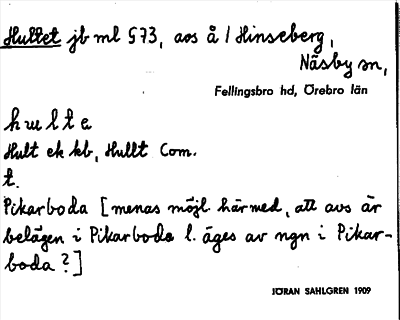 Hultet jb ml 973, avs å / Hinseberg,
Näsby sn,
Fellingsbro hd, Örebro län
hulte
Hult ek kb, Hullt Com.
t.
Pikarboda [menas möjl. härmed, att avs är
belägen i Pikarboda l. äges av ngn i Pikar-
boda?]
JÖRAN SAHLGREN 1909